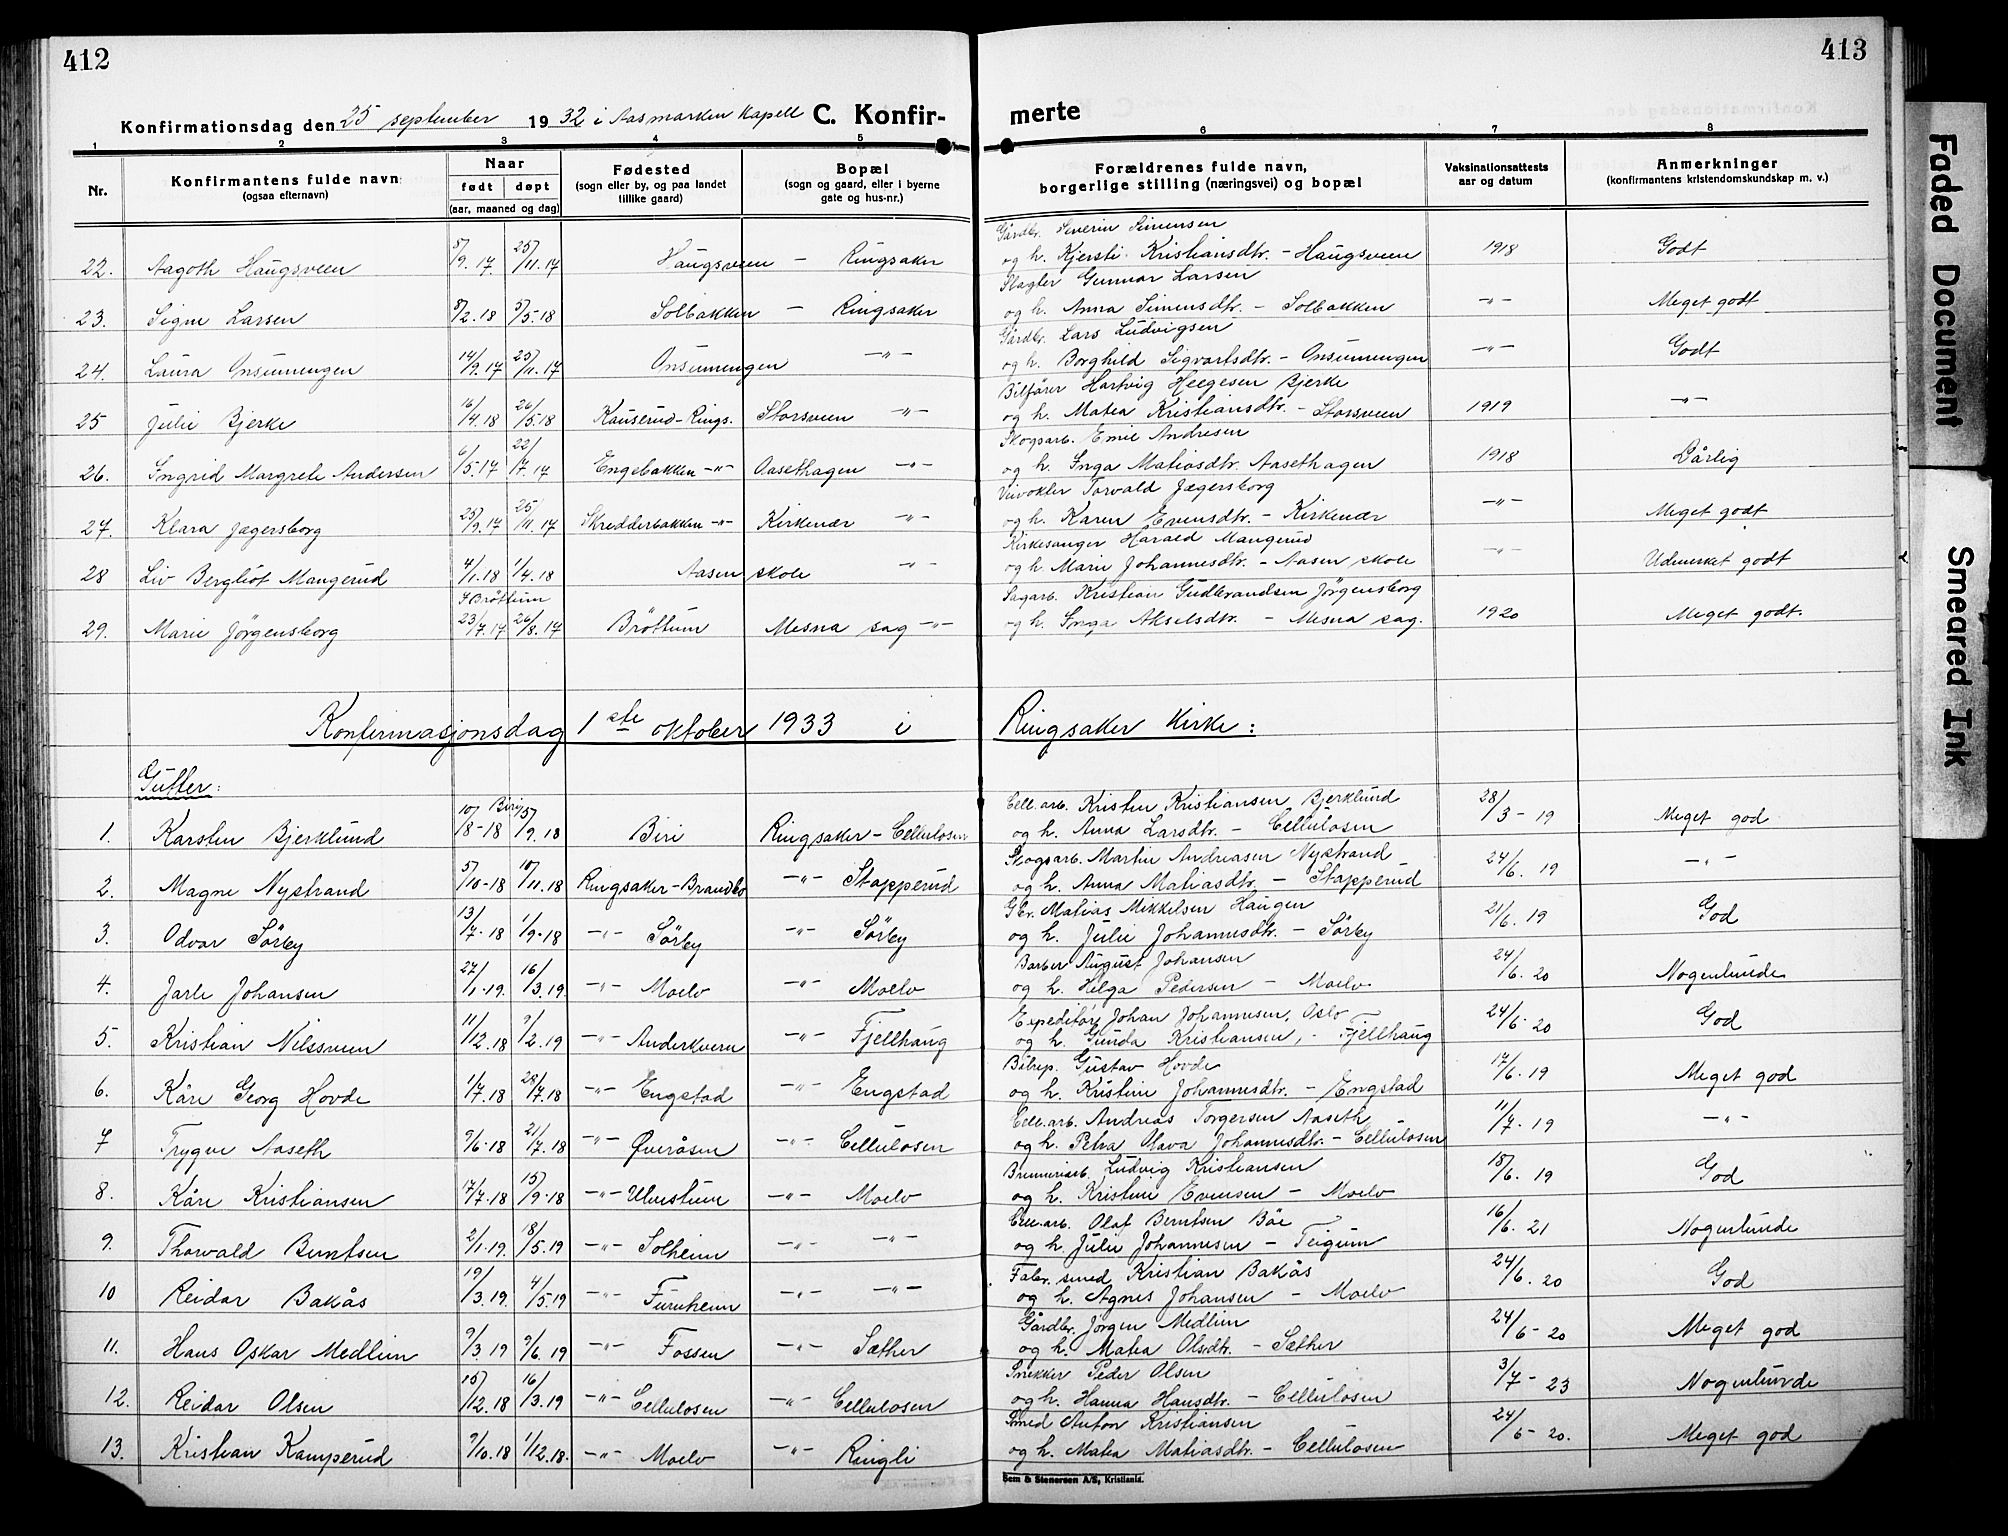 412
413
Konfirmationsdag den 25 september 1932 i Aasmarken Kapell C. Konfir-
merte
1 2 3 4 5 6 7 8
Nr. Konfirmantens fulde navn (ogsaa efternavn) Naar født døpt (aar, maaned og dag) Fødested (sogn eller by, og paa landet tillike gaard) Bopæl (sogn og gaard, eller i byerne gate og hus-nr.) Forældrenes fulde navn, borgerlige stilling (næringsvei) og bopæl Vaksinationsattests aar og datum Anmerkninger (konfirmantens kristendomskundskap m. v.)
Gårdbr. Severin Simensen
22. Aagoth Haugsveen 5/9. 17 25/11. 17 Haugsveen – Ringsaker og h. Kjersti Kristiansdtr. – Haugsveen 1918 Godt
Slagter Gunnar Larsen
23. Signe Larsen 8/2. 18 5/5. 18 Solbakken – Ringsaker og h. Anna Simensdtr. – Solbakken –"– Meget godt
Gårdbr. Lars Ludvigsen
24. Laura Onsumengen 14/9. 17 25/11. 17 Onsumengen –"– og h. Borghild Sigvartsdtr. – Onsumengen –"– Godt
Bilfører Hartvig Helgesen Bjerke
25 Julie Bjerke 16/4. 18 26/5. 18 Kauserud – Rings. Storsveen –"– og h. Matea Kristiansdtr. – Storsveen 1919 –"–
Skogsarb. Emil Andresen
26. Ingrid Margrete Andersen 6/5. 17 22/7. 17 Engebakken –"– Aasethagen –"– og h. Inga Matiasdtr. Aasethagen 1918 Dårlig
Torvald Jægersborg
27. Klara Jægersborg 25/9. 17 25/11. 17 Skredderbakken –"– Kirkenær –"– og h. Karen Evensdtr. – Kirkenær –"– Meget godt
Kirkesanger Harald Mangerud
28 Liv Bergliot Mangerud 4/1. 18 1/4. 18 Aasen skole –"– og h. Marie Johannesdtr. – Aasen skole –"– Udmerket godt
I Brøttum
Sagarb. Kristian Gudbrandsen Jörgensborg
29. Marie Jörgensborg 23/7. 17 26/8. 17 Bröttum Mesna sag –"– og h. Inga Akselsdtr. – Mesna sag. 1920 Meget godt.
Konfirmasjonsdag 1ste oktober 1933 i Ringsaker Kirke:
Gutter:
Biri
Cell.arb. Kristen Kristiansen Bjerklund
1. Karsten Bjerklund 10/8-18 15/9. 18 Biri Ringsaker – Cellulosen og h. Anna Larsdtr. – Cellulosen 28/3 - 19 Meget god
Skogsarb. Martin Andreasen Nystrand
2. Magne Nystrand 5/10-18 10/11. 18 Ringsaker – Brandbo –"– Stapperud og h. Anna Matiasdtr. – Stapperud 24/6. 19 –"–
Gbr. Matias Mikkelsen Haugen
3. Odvar Sörby 13/7. 18 1/9-18 –"– Sörby –"– Sörby og h. Julie Johannesdtr. – Sörby 21/6. 19 God
Barber August Johansen
4. Jarle Johansen 27/1. 19. 16/3. 19. –"– Moelv –"– Moelv og h. Helga Pedersen – Moelv 24/6. 20 Nogenlunde
Expeditör Johan Johannesen, Oslo
5. Kristian Nilssveen 11/12. 18 9/2. 19 –"– Anderkvern –"– Fjellhaug og h. Gunda Kristiansen, – Fjellhaug 24/6 - 20 God
Bilrep. Gustav Hovde
6. Kåre Georg Hovde 1/7. 18 28/7. 18 –"– Engstad –"– Engstad og h. Kristine Johannesdtr. – Engstad 17/6. 19 Meget god
Cell.arb. Andreas Torgersen Aaseth
7 Trygve Aaseth 9/6-18 21/7. 18 –"– Överåsen –"– Cellulosen og h. Petra Olava Johannesdtr. – Cellulosen 11/7. 19 –"–
Ludvig Kristiansen
8. Kåre Kristiansen 17/7. 18 15/9-18 –"– –"– Moelv og h. Kristine Evensen – Moelv 18/6. 19 God
Cell.arb. Olaf Berntsen Böe
9. Thorvald Berntsen 2/1. 19. 18/5. 19 –"– Solheim –"– –"– og h. Julie Johannesen – Teigum 16/6. 21 Nogenlunde
Fabr. smed Kristian Bakås
10 Reidar Bakås 19/3. 19. 4/5. 19 –"– Furuheim –"– –"– og h. Agnes Johansen – Moelv 24/6. 20 God
Gårdbr. Jörgen Medlien
11. Hans Oskar Medlien 9/3. 19 9/6. 19 –"– Fossen –"– Sæther og h. Matea Olsdtr. – Sæther 24/6 - 20 Meget god
Snekker Peder Olsen
12. Reidar Olsen 15/12. 18 16/3. 19 –"– Cellulosen –"– Cellulosen og h. Hanna Hansdtr. – Cellulosen 3/7 - 23 Nogenlunde
Smed Anton Kristiansen
13. Kristian Kamperud 9/10. 18 1/12. 18. –"– Moelv –"– Ringli og h. Matea Matiasdtr. – Cellulosen 24/6 - 20. Meget god
Sem & Stenersen A/S, Kristiania.
Faded Document
Smeared Ink